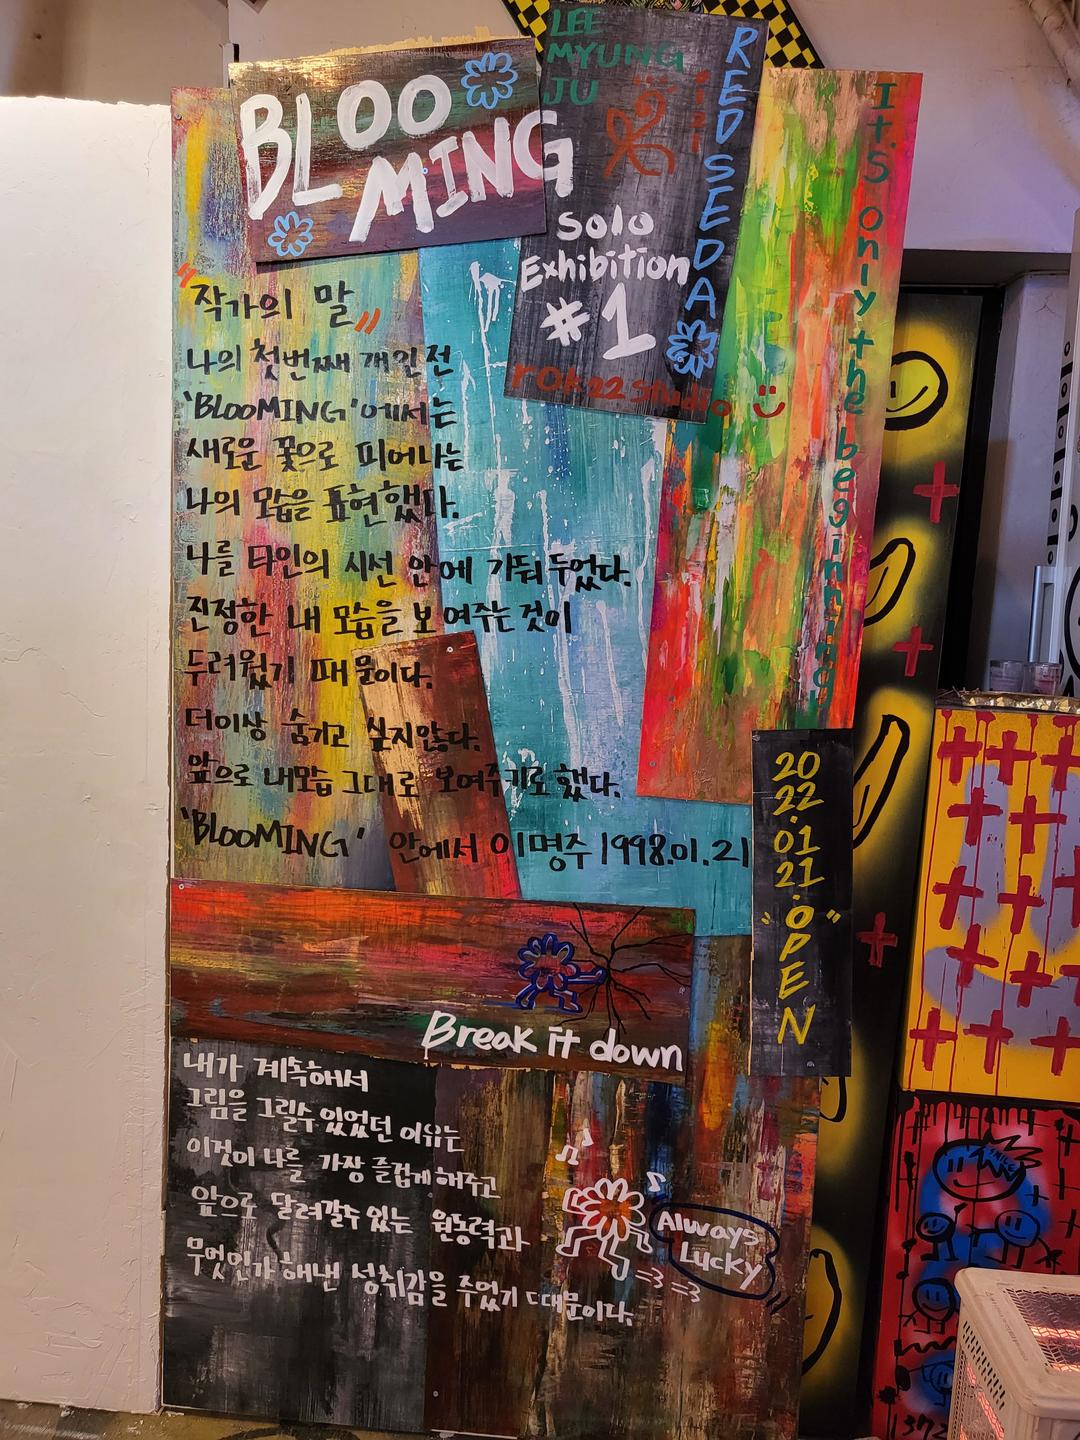 BLOO
MING
LEE
MYUNG
JU
RED SEDA
Solo
Exhibition
#1
rok22 studio
It's only the beginning
"작가의 말"
나의 첫번째 개인전
'BLOOMING'에서는
새로운 꽃으로 피어나는
나의 모습을 표현했다.
나를 타인의 시선 안에 가둬두었다.
진정한 내 모습을 보여주는것이
두려웠기 때문이다.
더이상 숨기고 싶지않다.
앞으로 내모습 그대로 보여주기로 했다.
'BLOOMING' 안에서 이명주 1998.01.21
20
22
.01
.21
"OPEN"
Break it down
내가 계속해서
그림을 그릴수있었던 이유는
이것이 나를 가장 즐겁게해주고
앞으로 달려갈수있는 원동력과
무엇인가 해낸 성취감을 주었기 때문이다.
Always
Lucky